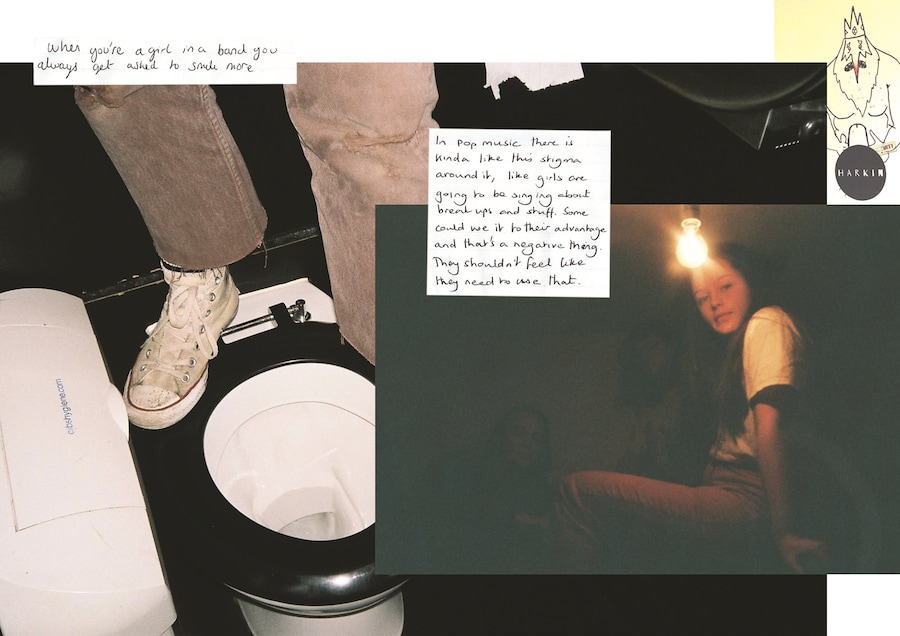 When you're a girl in a band you
always get asked to smile more
In pop music there is
kinda like this stigma
around it, like girls are
going to be singing about
break ups and stuff. Some
could use it to their advantage
and that's a negative thing.
They shouldn't feel like
they need to use that.
HARKIN
citrshygiene.com